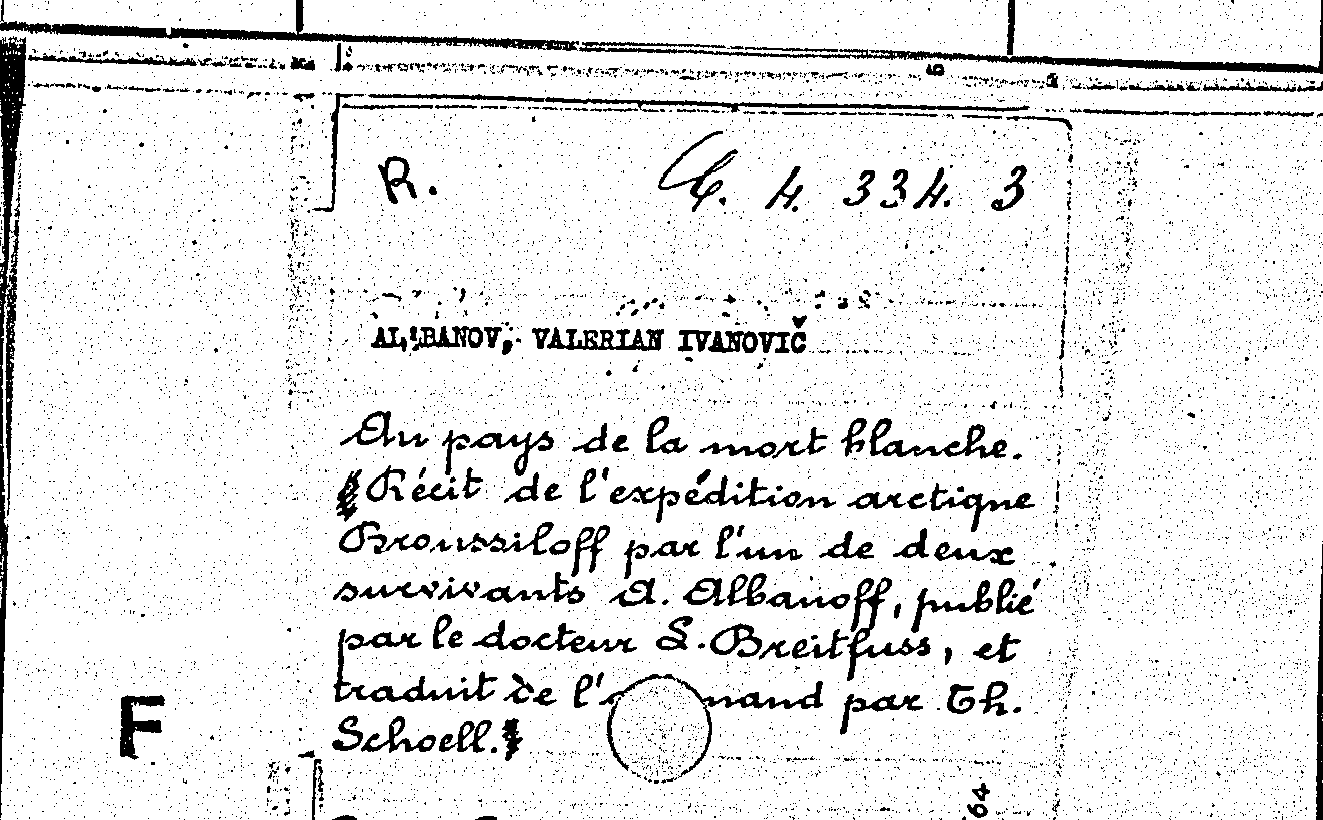 R. C. 4. 334. 3
ALʹBANOV, VALERIAN IVANOVIČ
Au pays de la mort blanche.
Récit de l'expédition arctique
Broussiloff par l'un de deux
survivants A. Albanoff, publié
par le docteur L. Breitfuss, et
traduit de par Th.
Schoell.
F
64